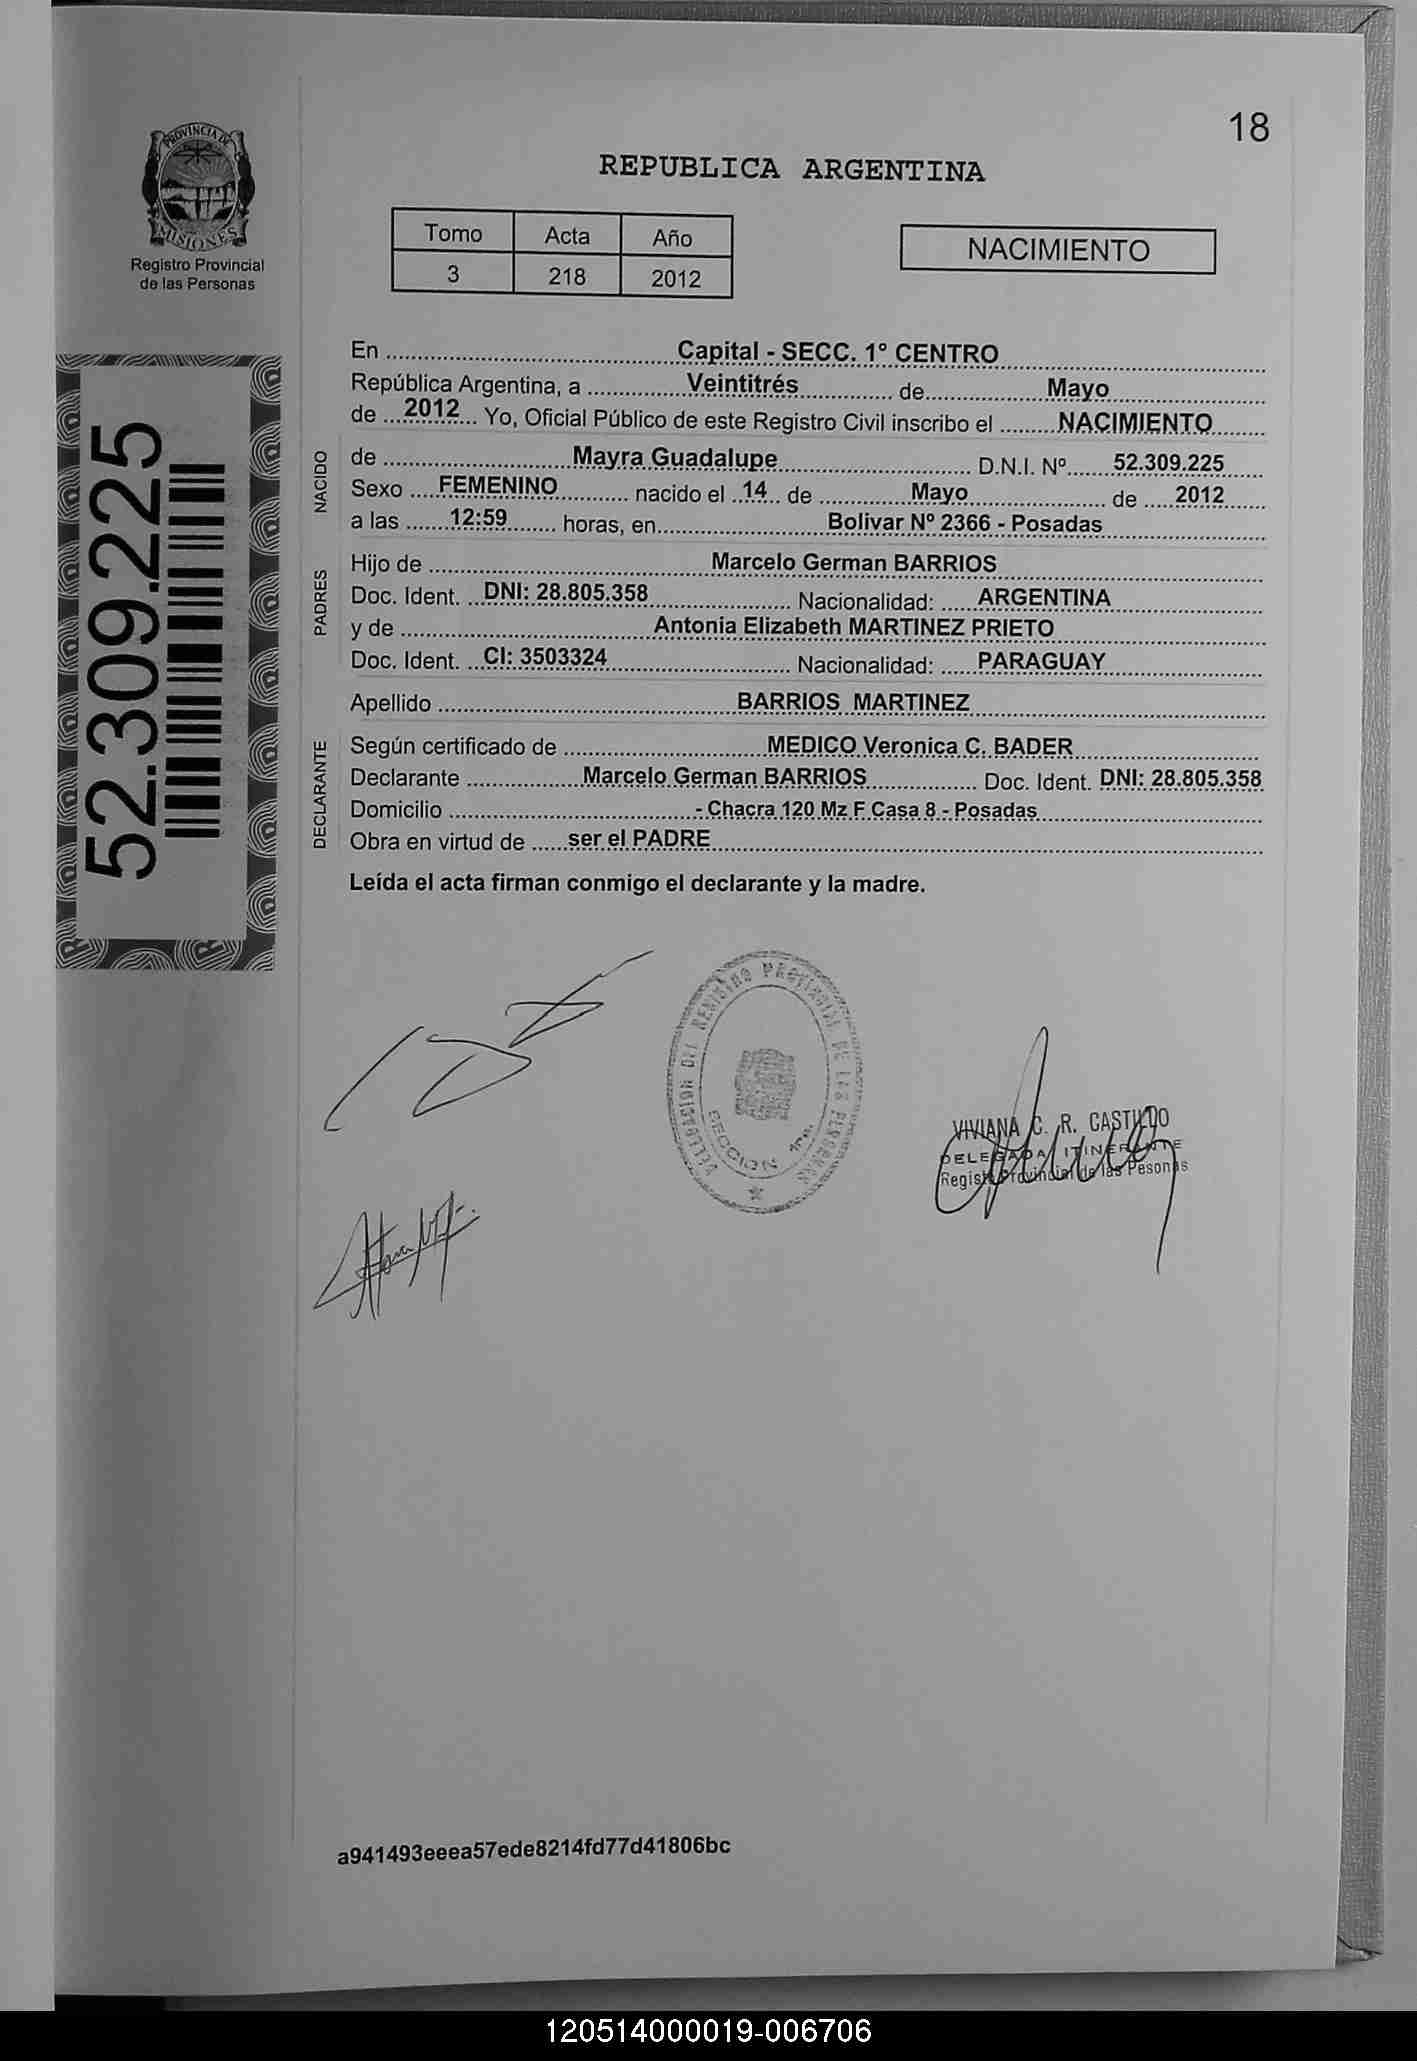 18
PROVINCIA DE
MISIONES
Registro Provincial
de las Personas
REPUBLICA ARGENTINA
Tomo Acta Año
3 218 2012
NACIMIENTO
52.309.225
En ........ Capital - SECC. 1° CENTRO
República Argentina, a ........ Veintitrés ........ de ........ Mayo
de ... 2012 ... Yo, Oficial Público de este Registro Civil inscribo el ........ NACIMIENTO
NACIDO
de ........ Mayra Guadalupe ........ D.N.I. Nº ...... 52.309.225
Sexo .... FEMENINO ........ nacido el .. 14 .. de ........ Mayo ........ de .... 2012
a las ...... 12:59 ...... horas, en ........ Bolivar Nº 2366 - Posadas
PADRES
Hijo de ........ Marcelo German BARRIOS
Doc. Ident. ... DNI: 28.805.358 ........ Nacionalidad: ..... ARGENTINA
y de ........ Antonia Elizabeth MARTINEZ PRIETO
Doc. Ident. ... CI: 3503324 ........ Nacionalidad: ..... PARAGUAY
Apellido ........ BARRIOS MARTINEZ
DECLARANTE
Según certificado de ........ MEDICO Veronica C. BADER
Declarante ........ Marcelo German BARRIOS ........ Doc. Ident. DNI: 28.805.358
Domicilio ........ - Chacra 120 Mz F Casa 8 - Posadas
Obra en virtud de ..... ser el PADRE
Leída el acta firman conmigo el declarante y la madre.
DELEGACION DEL REGISTRO PROVINCIAL DE LAS PERSONAS
SECCION 1ra.
VIVIANA C. R. CASTILLO
DELEGADA ITINERANTE
Registro Provincial de las Pesonas
a941493eeea57ede8214fd77d41806bc
120514000019-006706